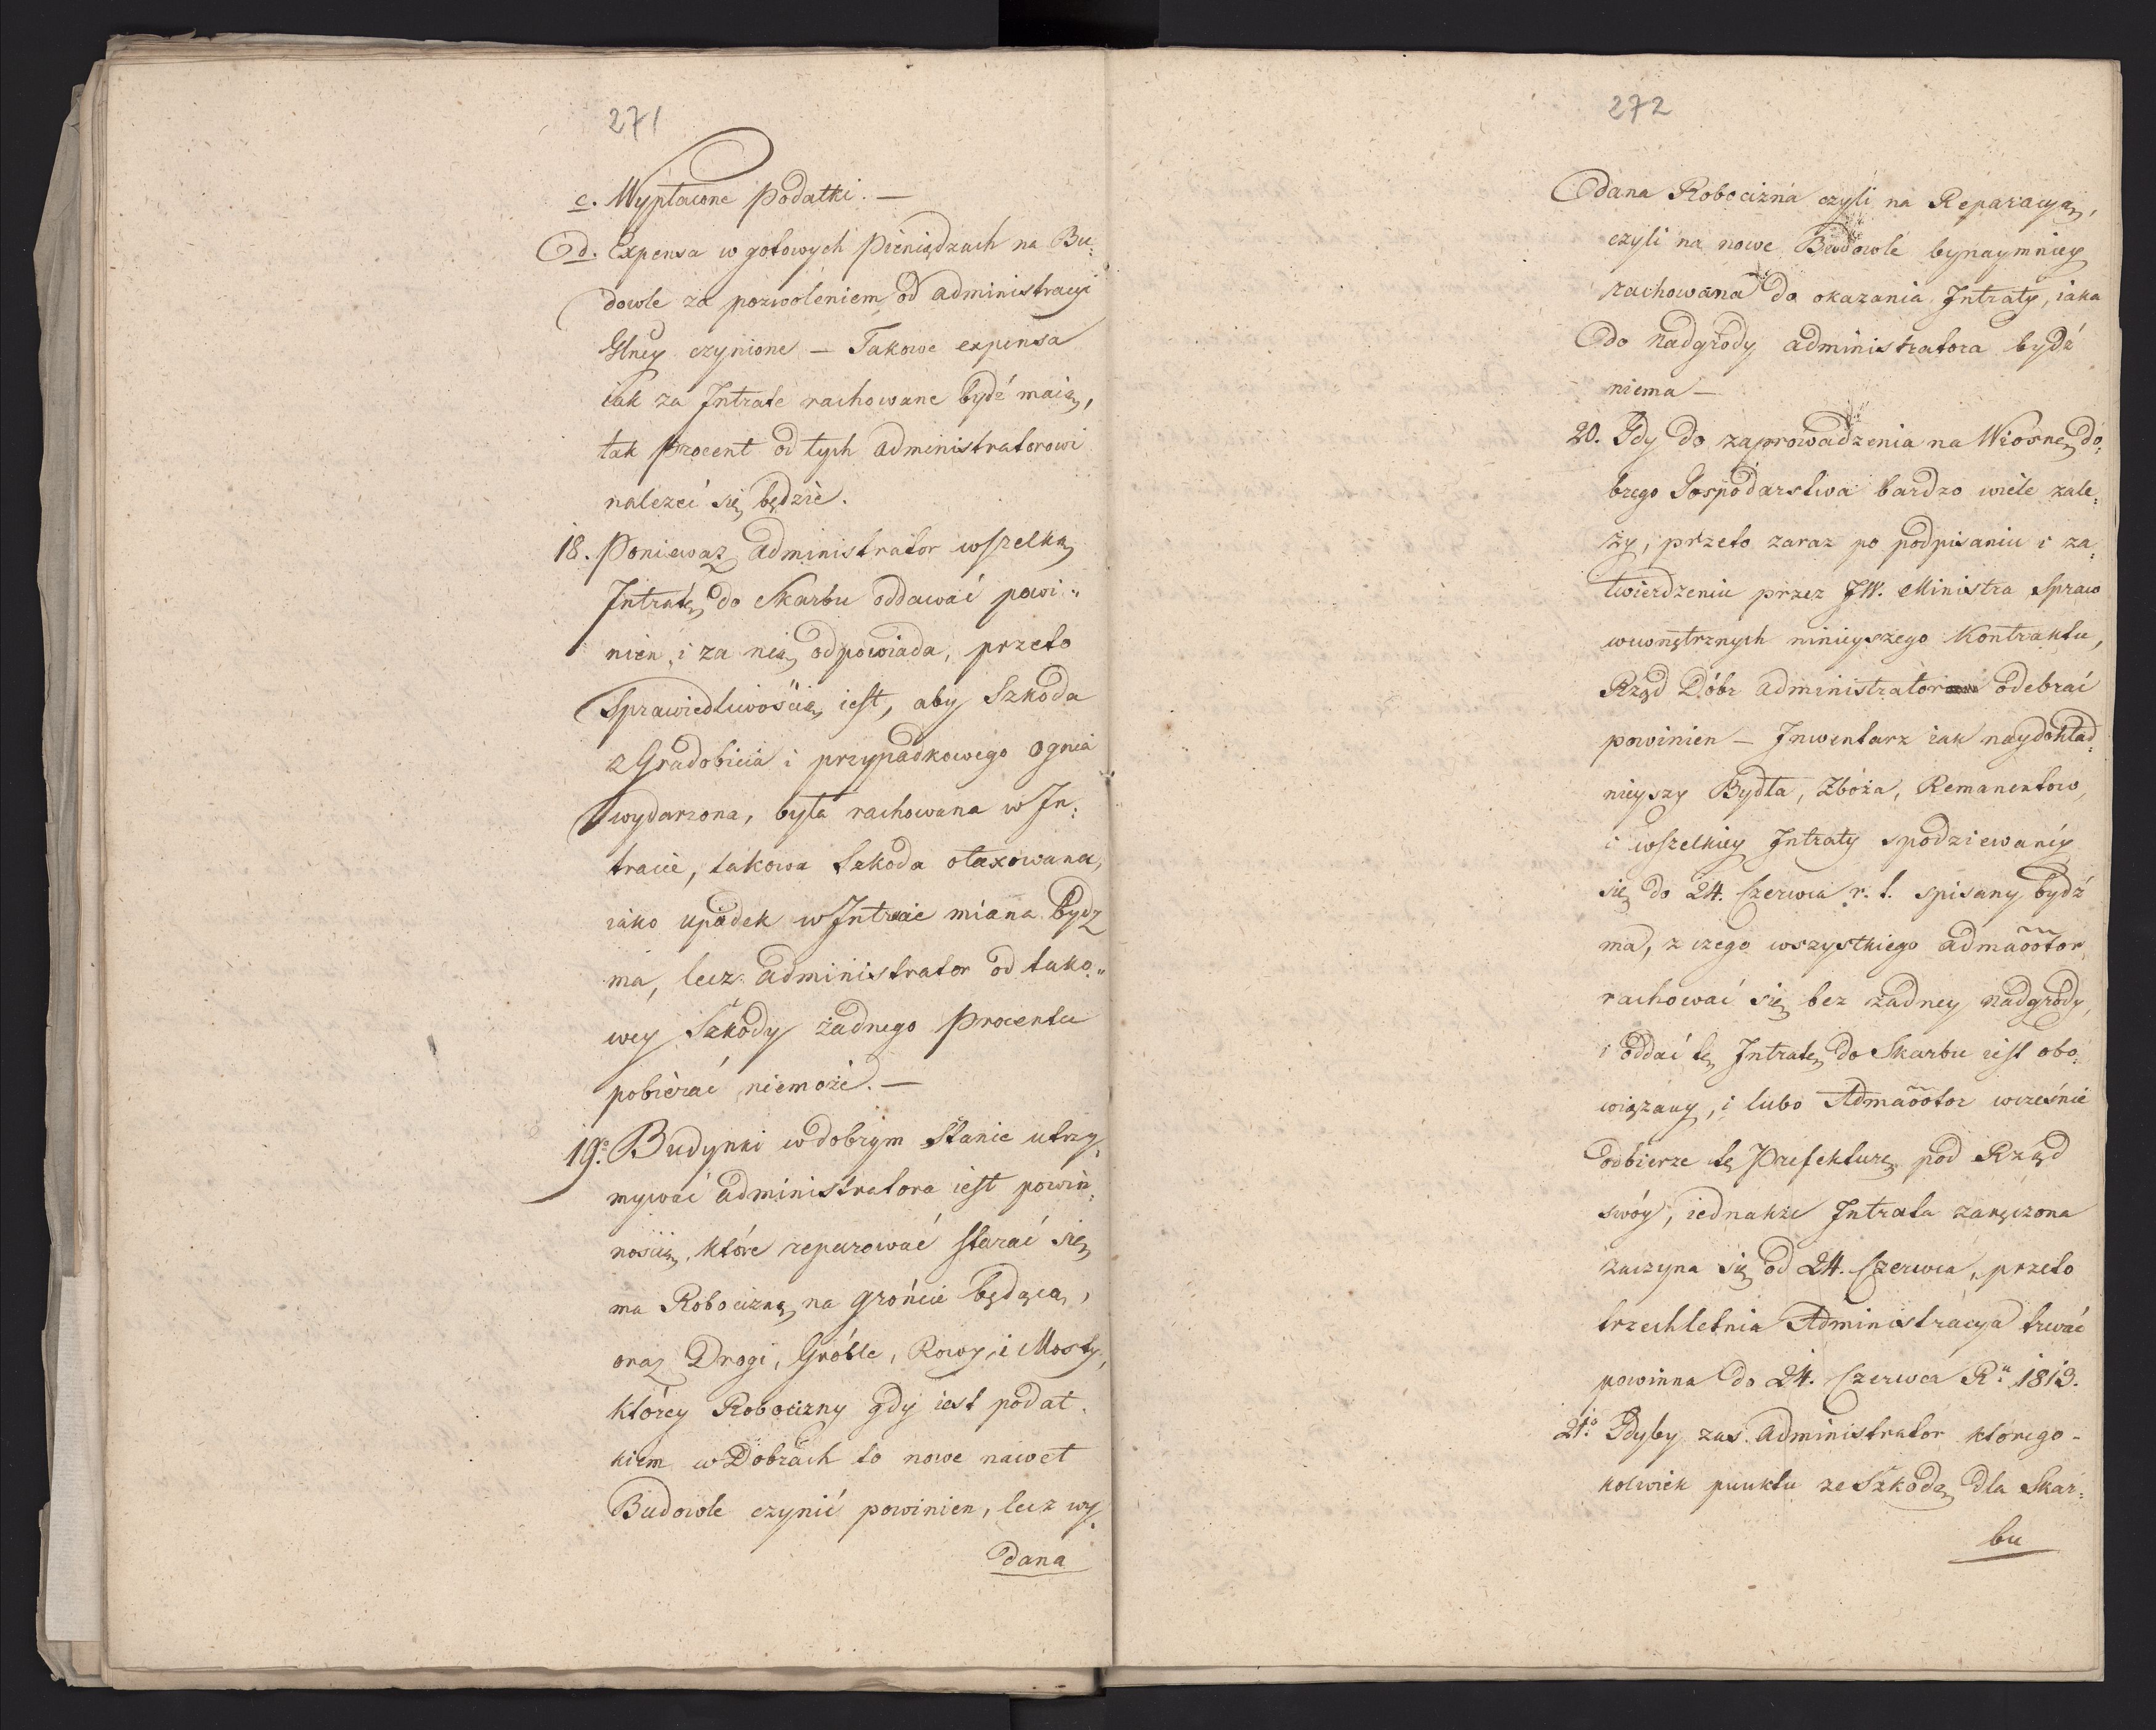 271
c. Wypłacone Podatki. —
d. Expensa w gotowych Pieniądzach na Bu:
dowle za pozwoleniem od Administracyi
Głney czynione — Takowe expensa
iak za Intratę rachowane bydź maią,
tak Procent od tych Administratorowi
należeć się będzie.
18. Ponieważ Administrator wszelką
Intratę do Skarbu oddawać powi„
nien i za nią odpowiada, przeto
Sprawiedliwością iest, aby Szkoda
z Gradobicia i przypadkowego Ognia
wydarzona, była rachowana w In:
tracie, takowa Szkoda otaxowana,
iako upadek w Intracie miana bydz
ma, lecz Administrator od tako„
wey Szkody żadnego Procentu
pobierać niemoże. —
19o. Budynki w dobrym Stanie utrzy,
mywać Administratora iest powin:
nością, które reparować starać się
ma Robocizną na gróncie będącą,
oraz Drogi, Gróble, Rowy, i Mosty,
którey Robocizny gdy iest podat.
kiem w Dobrach to nowe nawet
Budowle czynić powinien, lecz wy.
dana
272
dana Robocizna czyli na Reparacyą,
czyli na nowe Budowle bynaymniey
rachowana do okazania Intraty, iaka
do nadgrody Administratora bydź
niema —
20. Gdy do zaprowadzenia na Wiosnę do:
brego Gospodarstwa bardzo wiele zale:
ży, przeto zaraz po podpisaniu i za:
twierdzeniu przez JW. Ministra Spraw
wewnętrznych ninieyszego Kontraktu,
Rząd Dóbr Administrator odebrać
powinien — Inwentarz iak naydokład:
nieyszy Bydła, Zboża, Remanentow,
i wszelkiey Intraty spodziewaniy
się do 24. Czerwca r. t. spisany bydź
ma, z czego wszystkiego Admaootor,
rachować się bez żadney nadgrody,
i oddać tę Intratę do Skarbu iest obo:
wiązany, i lubo Admaootor wcześnie
odbierze tę Prefekturę pod Rząd
swóy, iednakże Intrata zaręczona
zaczyna się od 24. Czerwca, przeto
trzechletnia Administracya trwać
powinna do 24. Czerwca Ru 1813.
21o. Gdyby zas Administrator którego-
kolwiek punktu ze Szkodą dla Skar:
bu